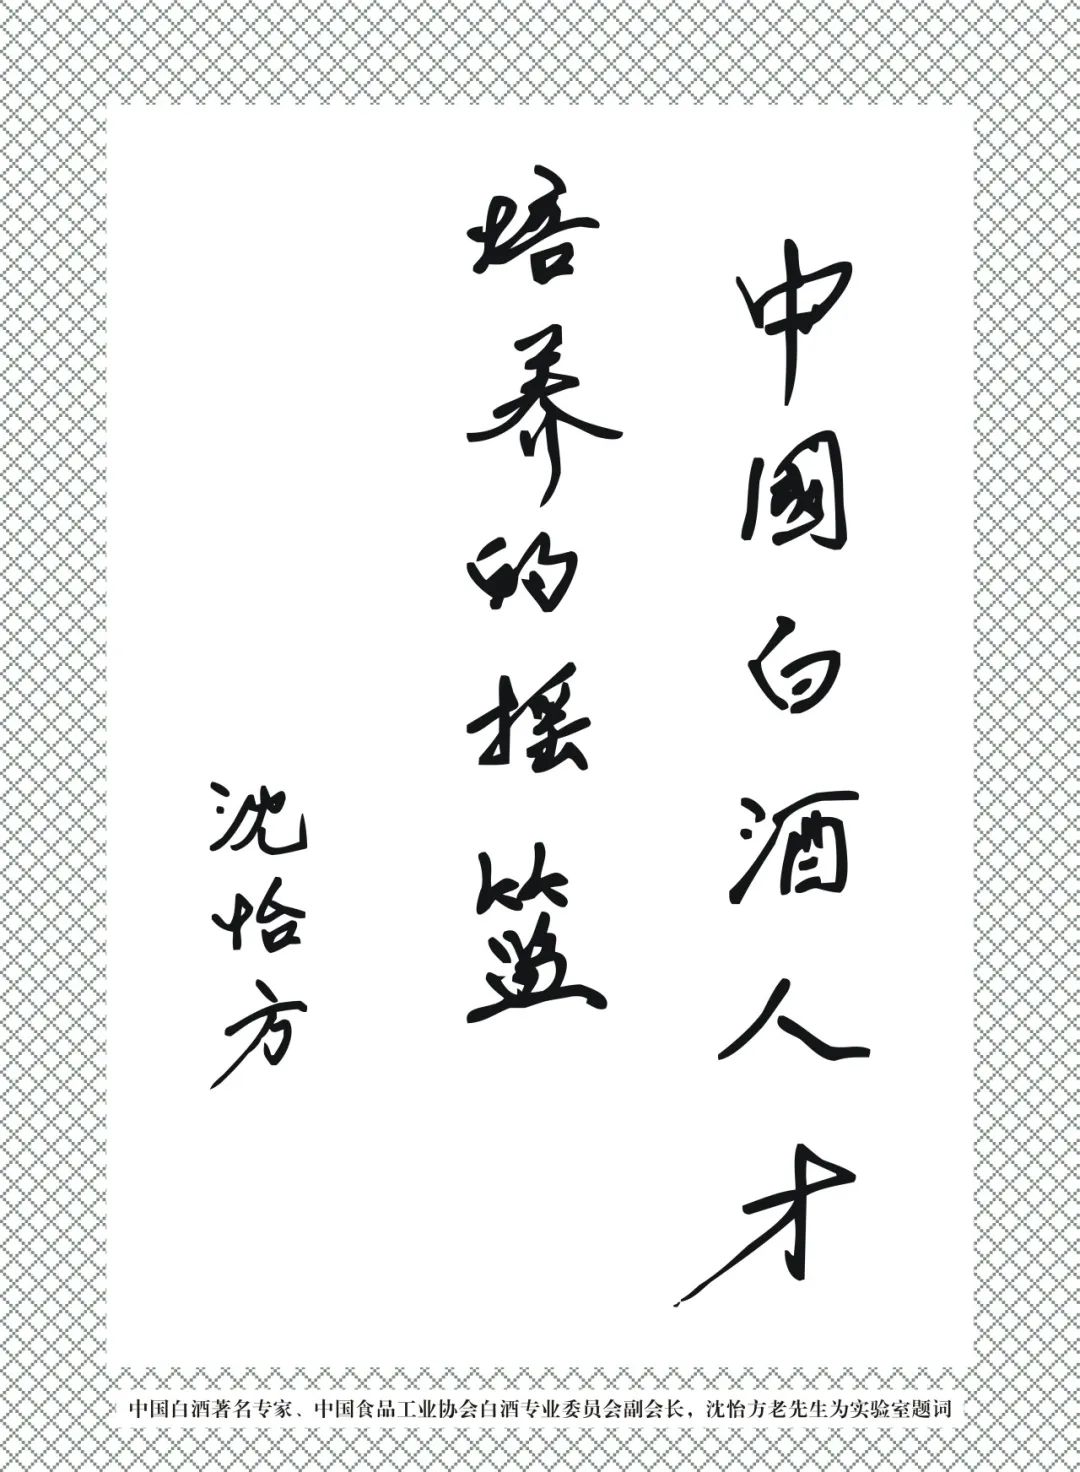 中國白酒人才
培养的摇篮
沈怡方
中国白酒著名专家、中国食品工业协会白酒专业委员会副会长，沈怡方老先生为实验室题词